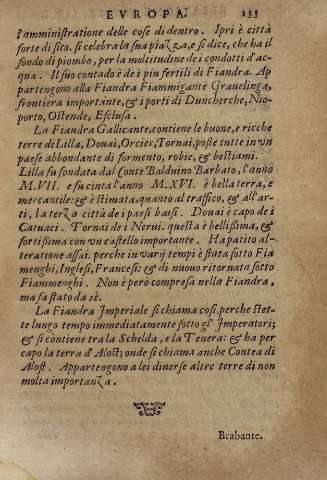 EVROPA. 155
l'amministratione delle cose di dentro. Ipri è città
forte di sito. si celebra la sua piazza, e si dice, che ha il
fondo di piombo, per la moltitudine de i condotti d'ac-
qua. Il suo contado è de i piu fertili di Fiandra. Ap
partengono alla Fiandra Fiammigante Grauelinga,
frontiera importante, & i porti di Duncherche, Nio-
porto, Ostende, Esclusa.
La Fiandra Gallicante, contiene le buone, e ricche
terre di Lilla, Douai, Orcies, Tornai, poste tutte in vn
paese abbondante di formento, robie, & bestiami.
Lilla fu fondata dal Conte Balduino Barbato, l'anno
M.VII. e fu cinta l'anno M.XVI. è bella terra, e
mercantile: & è stimata, quanto al traffico, & all'ar-
ti, la terza città de i paesi bassi. Douai è capo de i
Catuaci. Tornai de i Nerui. questa è bellissima, &
fortissima con vn castello importante. Ha patito al-
teratione assai. perche in varij tempi è stata sotto Fia
menghi, Inglesi, Francesi: & di nuouo ritornata sotto
Fiammenghi. Non è però compresa nella Fiandra,
ma fa stato da sè.
La Fiandra Imperiale si chiama cosi, perche stet-
te lungo tempo immediatamente sotto gl' Imperatori;
& si contiene tra la Schelda, e la Tenera: & ha per
capo la terra d'Alost; onde si chiama anche Contea di
Alost. Appartengono a lei diuerse altre terre di non
molta importanza.
Brabante.